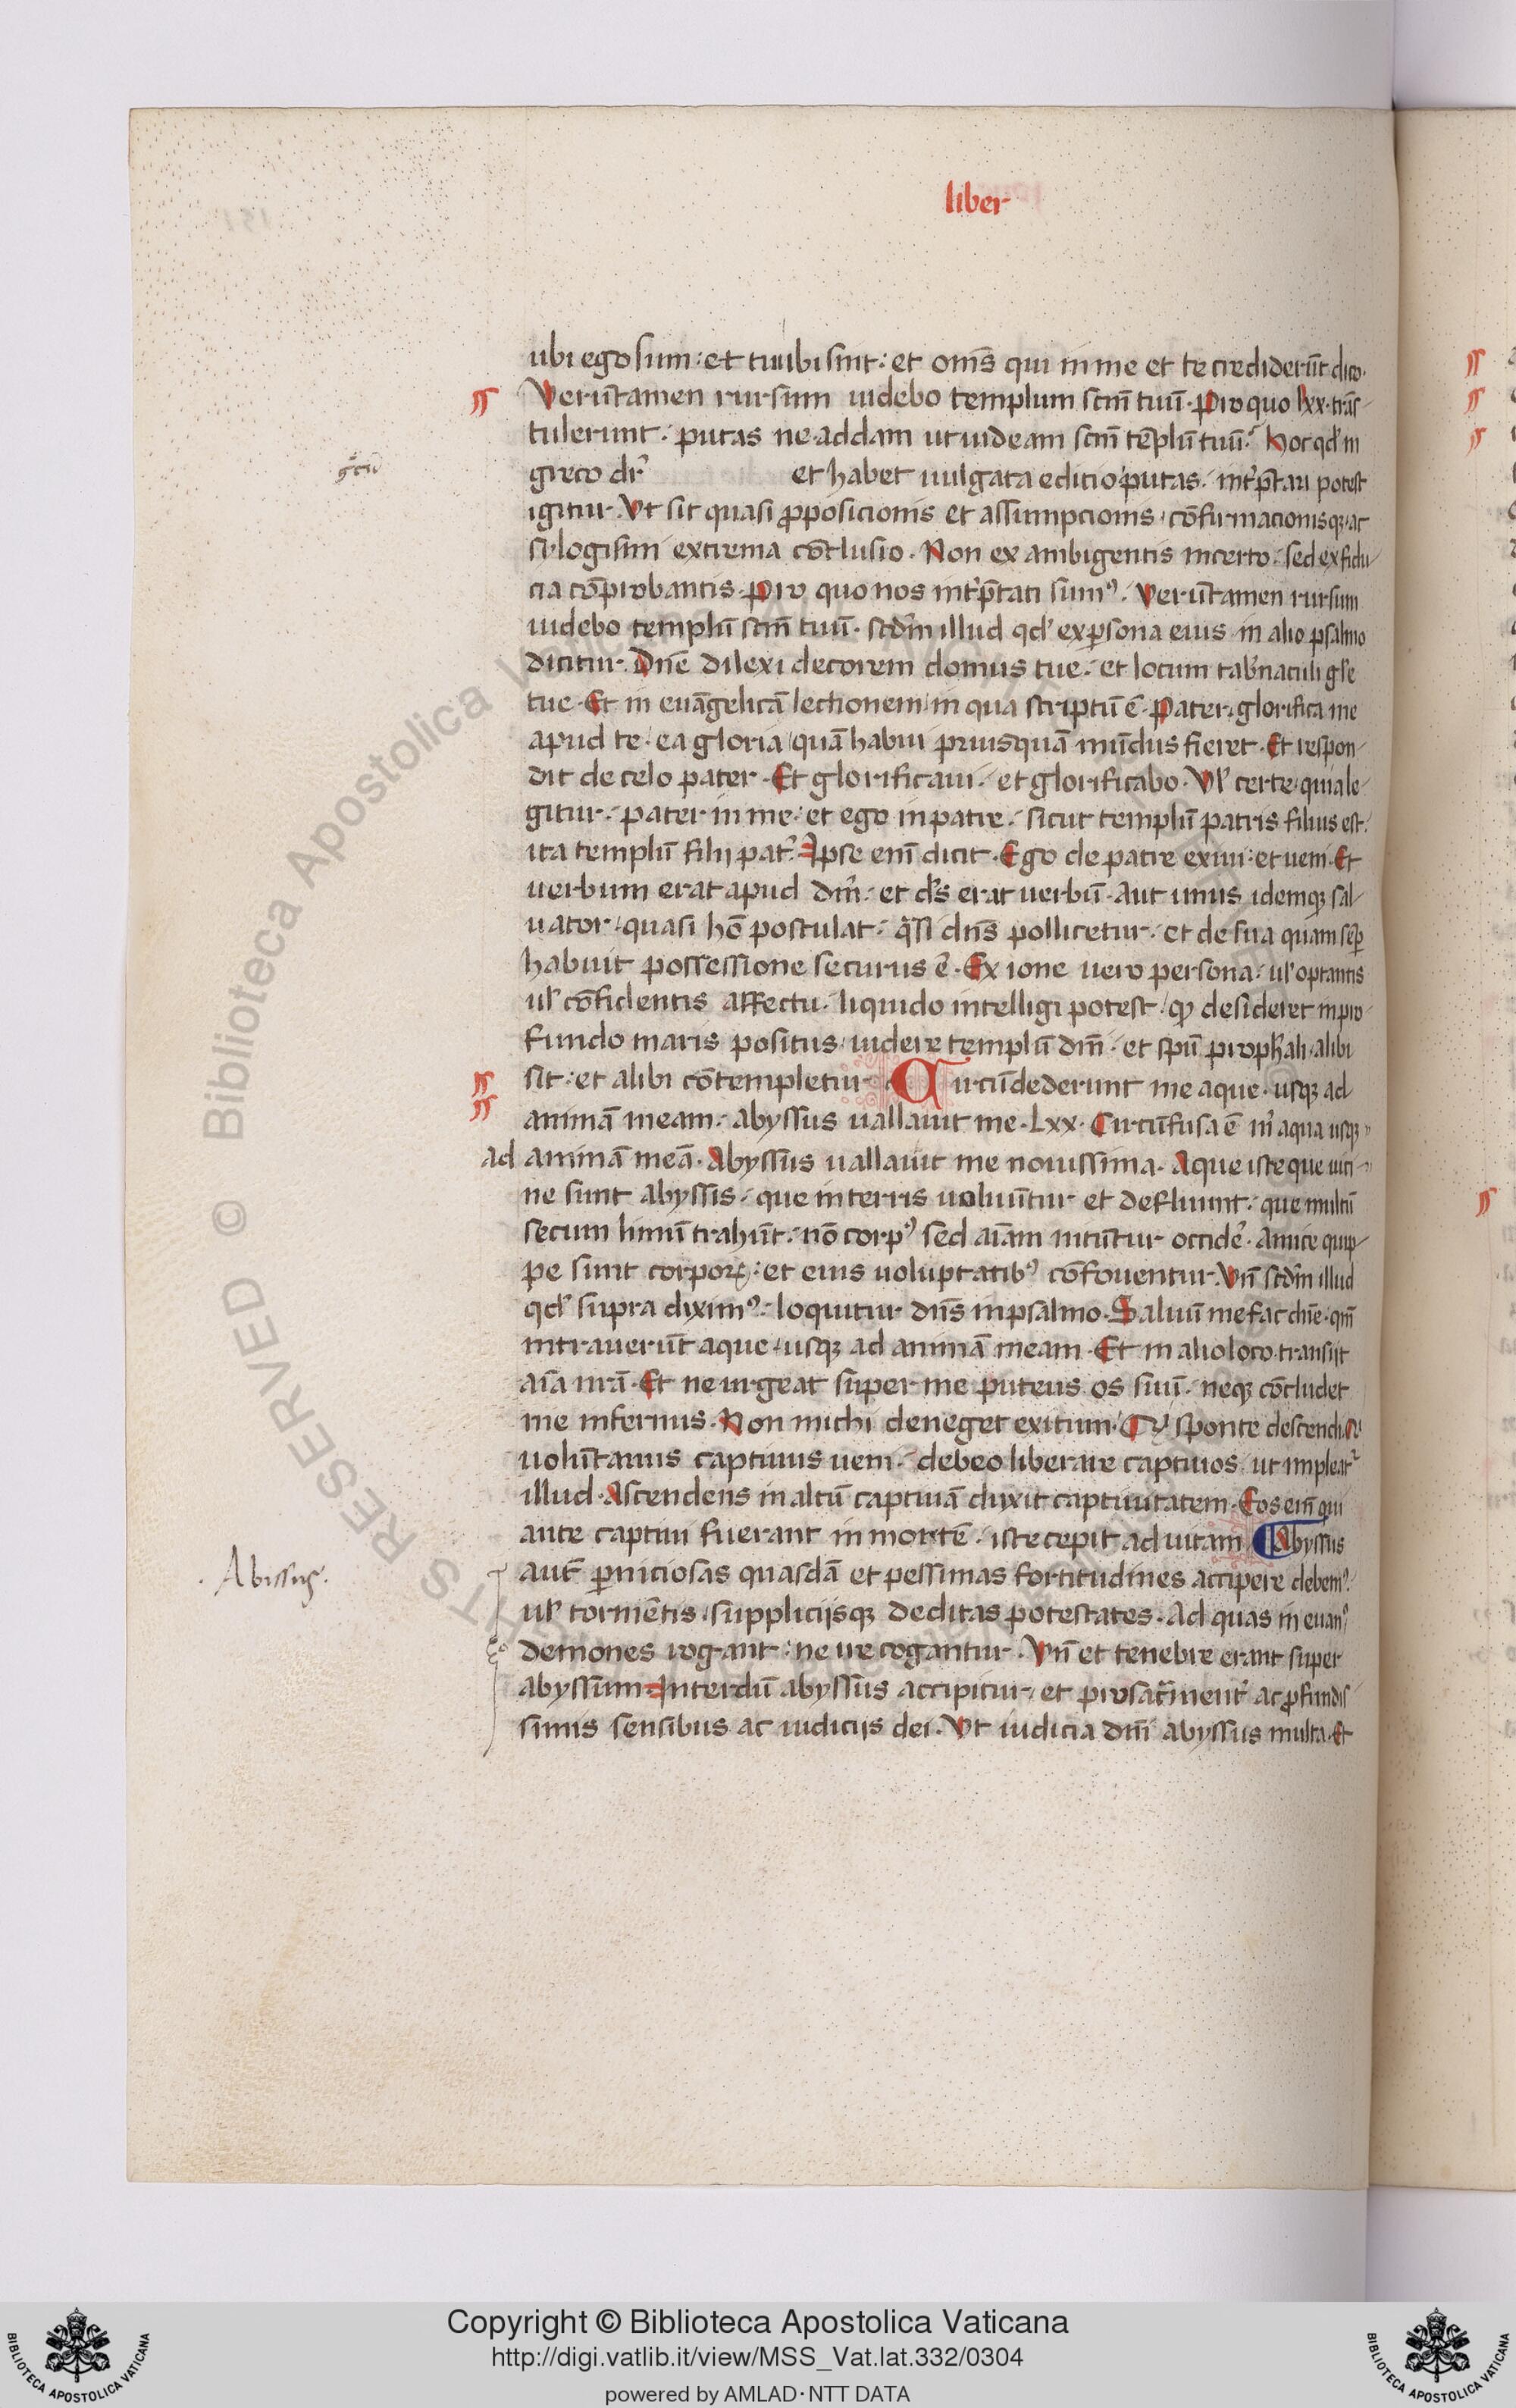 liber
ubi ego sum: et tu ibi sint: et om̅s qui in me et te crediderūt dico.
Verūtamen rursum uidebo templum scm̅ tuū. Pro quo lxx. trās
tulerunt. putas ne addam ut uideam scm̅ tēplū tuū? Hoc qd' in
greco dr̄ et habet uulgata editio putas. int'p̄tari potest
grecū
igitur. Vt sit quasi ꝓposicionis et assumpcionis. cōfirmacionisqꝫ ac
silogismi extrema cōclusio. Non ex ambigentis incerto. sed ex fidu
cia cōprobantis. Pro quo nos int'p̄tati sumꝰ. Verūtamen rursum
uidebo templū scm̅ tuū. scd'm illud qd' ex ꝑsona eius in alio psalmo
dicitur. Dn̄e dilexi decorem domus tue. et locum tab'naculi gl'e
tue. Et in euāgelicā lectionem in qua scriptū ē. Pater glorifica me
apud te. ea gloria quā habui priusquā mūdus fieret. Et respon
dit de celo pater. Et glorificaui. et glorificabo. Vl' certe quia le
gitur. pater in me. et ego in patre. sicut templū patris filius est.
ita templū filij pat'. Ipse eni̅ dicit. Ego de patre exiui: et ueni. Et
uerbum erat apud dm̅. et d's erat uerbū. Aut unus idemqꝫ sal
uator. quasi hō postulat. q̄si dn̄s pollicetur. et de sua quam sēp
habuit possessione securus ē. Ex ione uero persona. ul' optantis
ul' cōfidentis affectu. liquido intelligi potest. qꝫ desideret in pro
fundo maris positus. uidere templū dm̅. et spū proph'ali. alibi
sit: et alibi cōtempletur Circūdederunt me aque. usqꝫ ad
animā meam. abyssus uallauit me. Lxx. Circūfusa ē m̄ aqua usqꝫ
ad animā meā. Abyssus uallauit me nouissima. Aque iste que uici
ne sunt abyssis. que in terris uoluūtur et defluunt. que multū
secum limū trahūt. nō corpꝰ sed aīam nitūtur occid'e. Amice quip
pe sunt corporꝫ: et eius uoluptatibꝰ cōfouentur. Vn̄ scd'm illud
qd' supra diximꝰ. loquitur dn̄s in psalmo. Saluū me fac dn̄e. qm̅
intrauerūt aque usqꝫ ad animā meam. Et in alio loco. transijt
aīa nrā. Et ne urgeat super me puteus os suū. neqꝫ cōcludet
me infernus. Non michi deneget exitum. Qꝫ sponte descendi.
uolūtarius captiuus ueni. debeo liberare captiuos. ut impleat'
illud. Ascendens in altū captiuā duxit captiuitatem. Eos eni̅ qui
ante captiui fuerant in mortē. iste cepit ad uitam. Abyssus
Abissus.
aut̄ ꝑniciosas quasdā et pessimas fortitudines accipere debemꝰ.
ul' tormētis supplicijsqꝫ deditas potestates. Ad quas in euanꝰ
demones rogant: ne ire cogantur. Vn̄ et tenebre erant super
abyssum. Interdū abyssus accipitur. et pro sac̄ment' ac ꝓfundis
simis sensibus ac iudicijs dei. Vt iudicia dm̄i abyssus multa. Et
RESERVED © Biblioteca Apostolica Vaticana
Copyright © Biblioteca Apostolica Vaticana
http://digi.vatlib.it/view/MSS_Vat.lat.332/0304
powered by AMLAD·NTT DATA
BIBLIOTECA APOSTOLICA VATICANA
BIBLIOTECA APOSTOLICA VATICANA